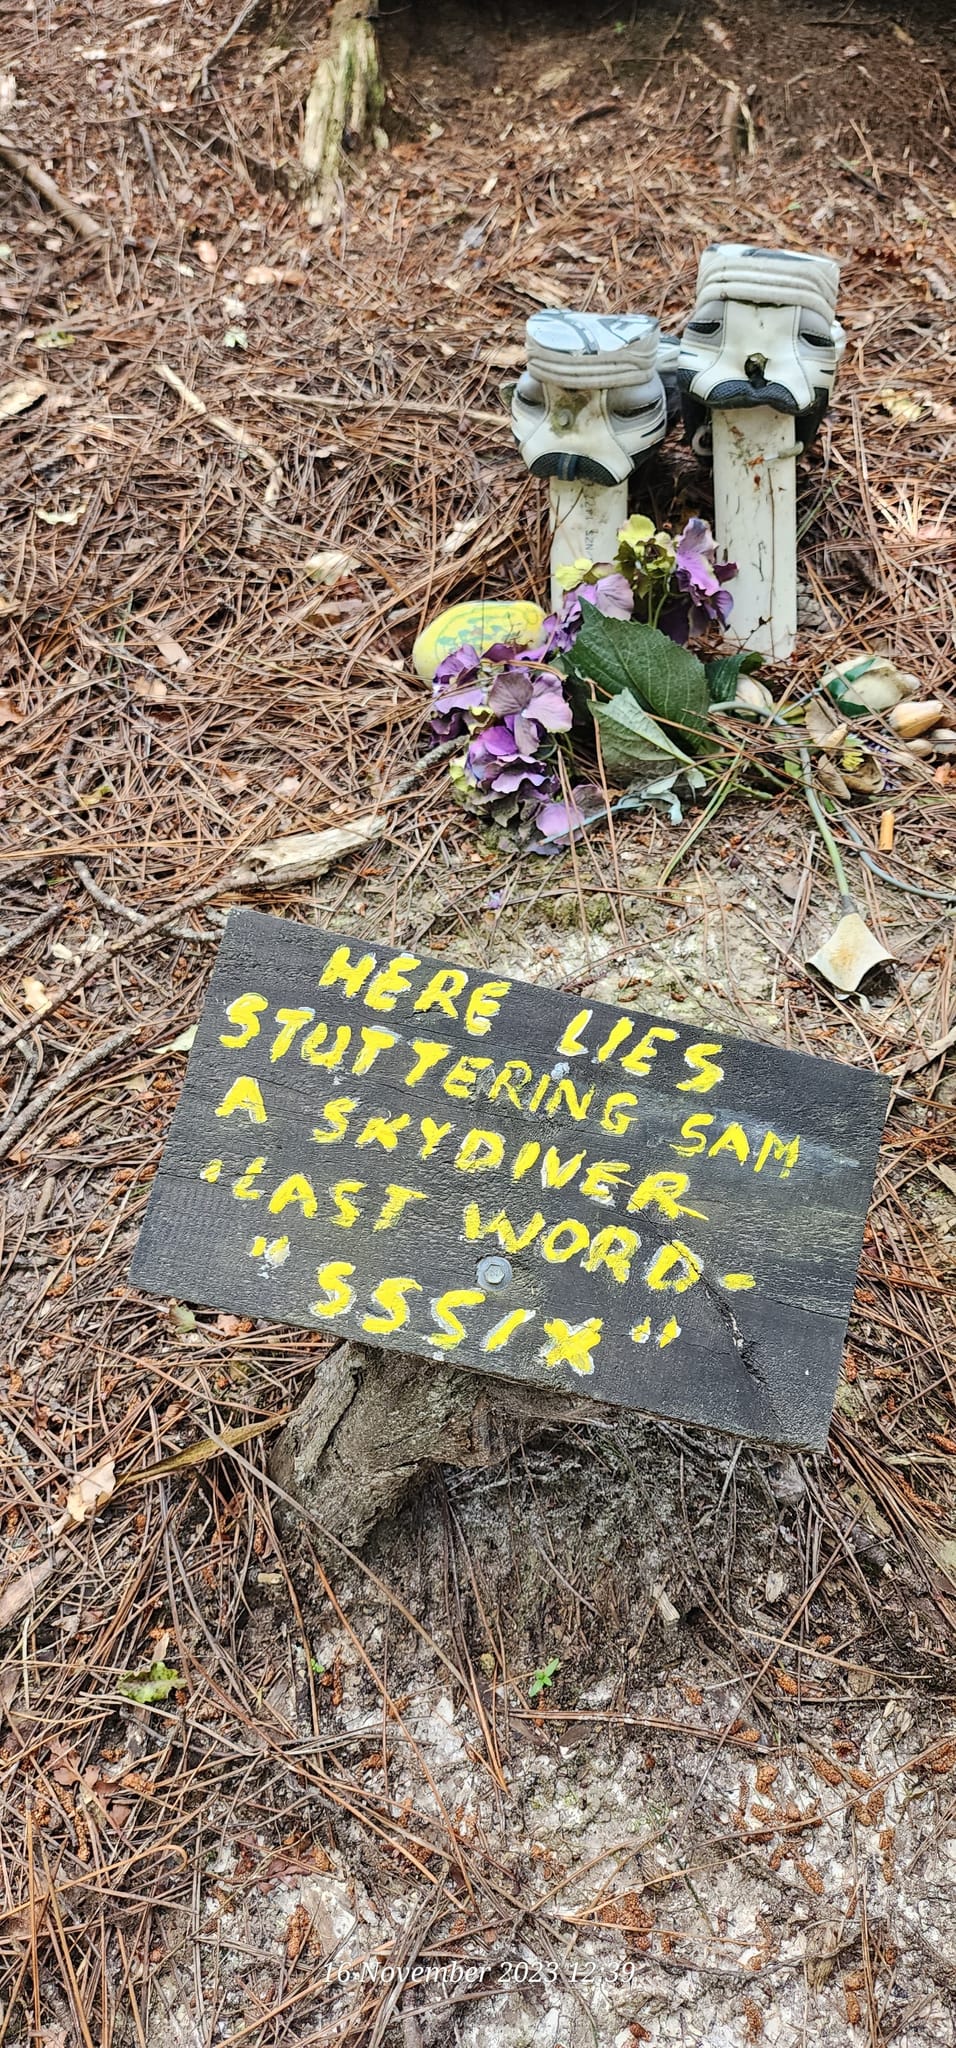 HERE LIES
STUTTERING SAM
A SKYDIVER
"LAST WORD-
"SSSIX"
16 November 2023 12:39